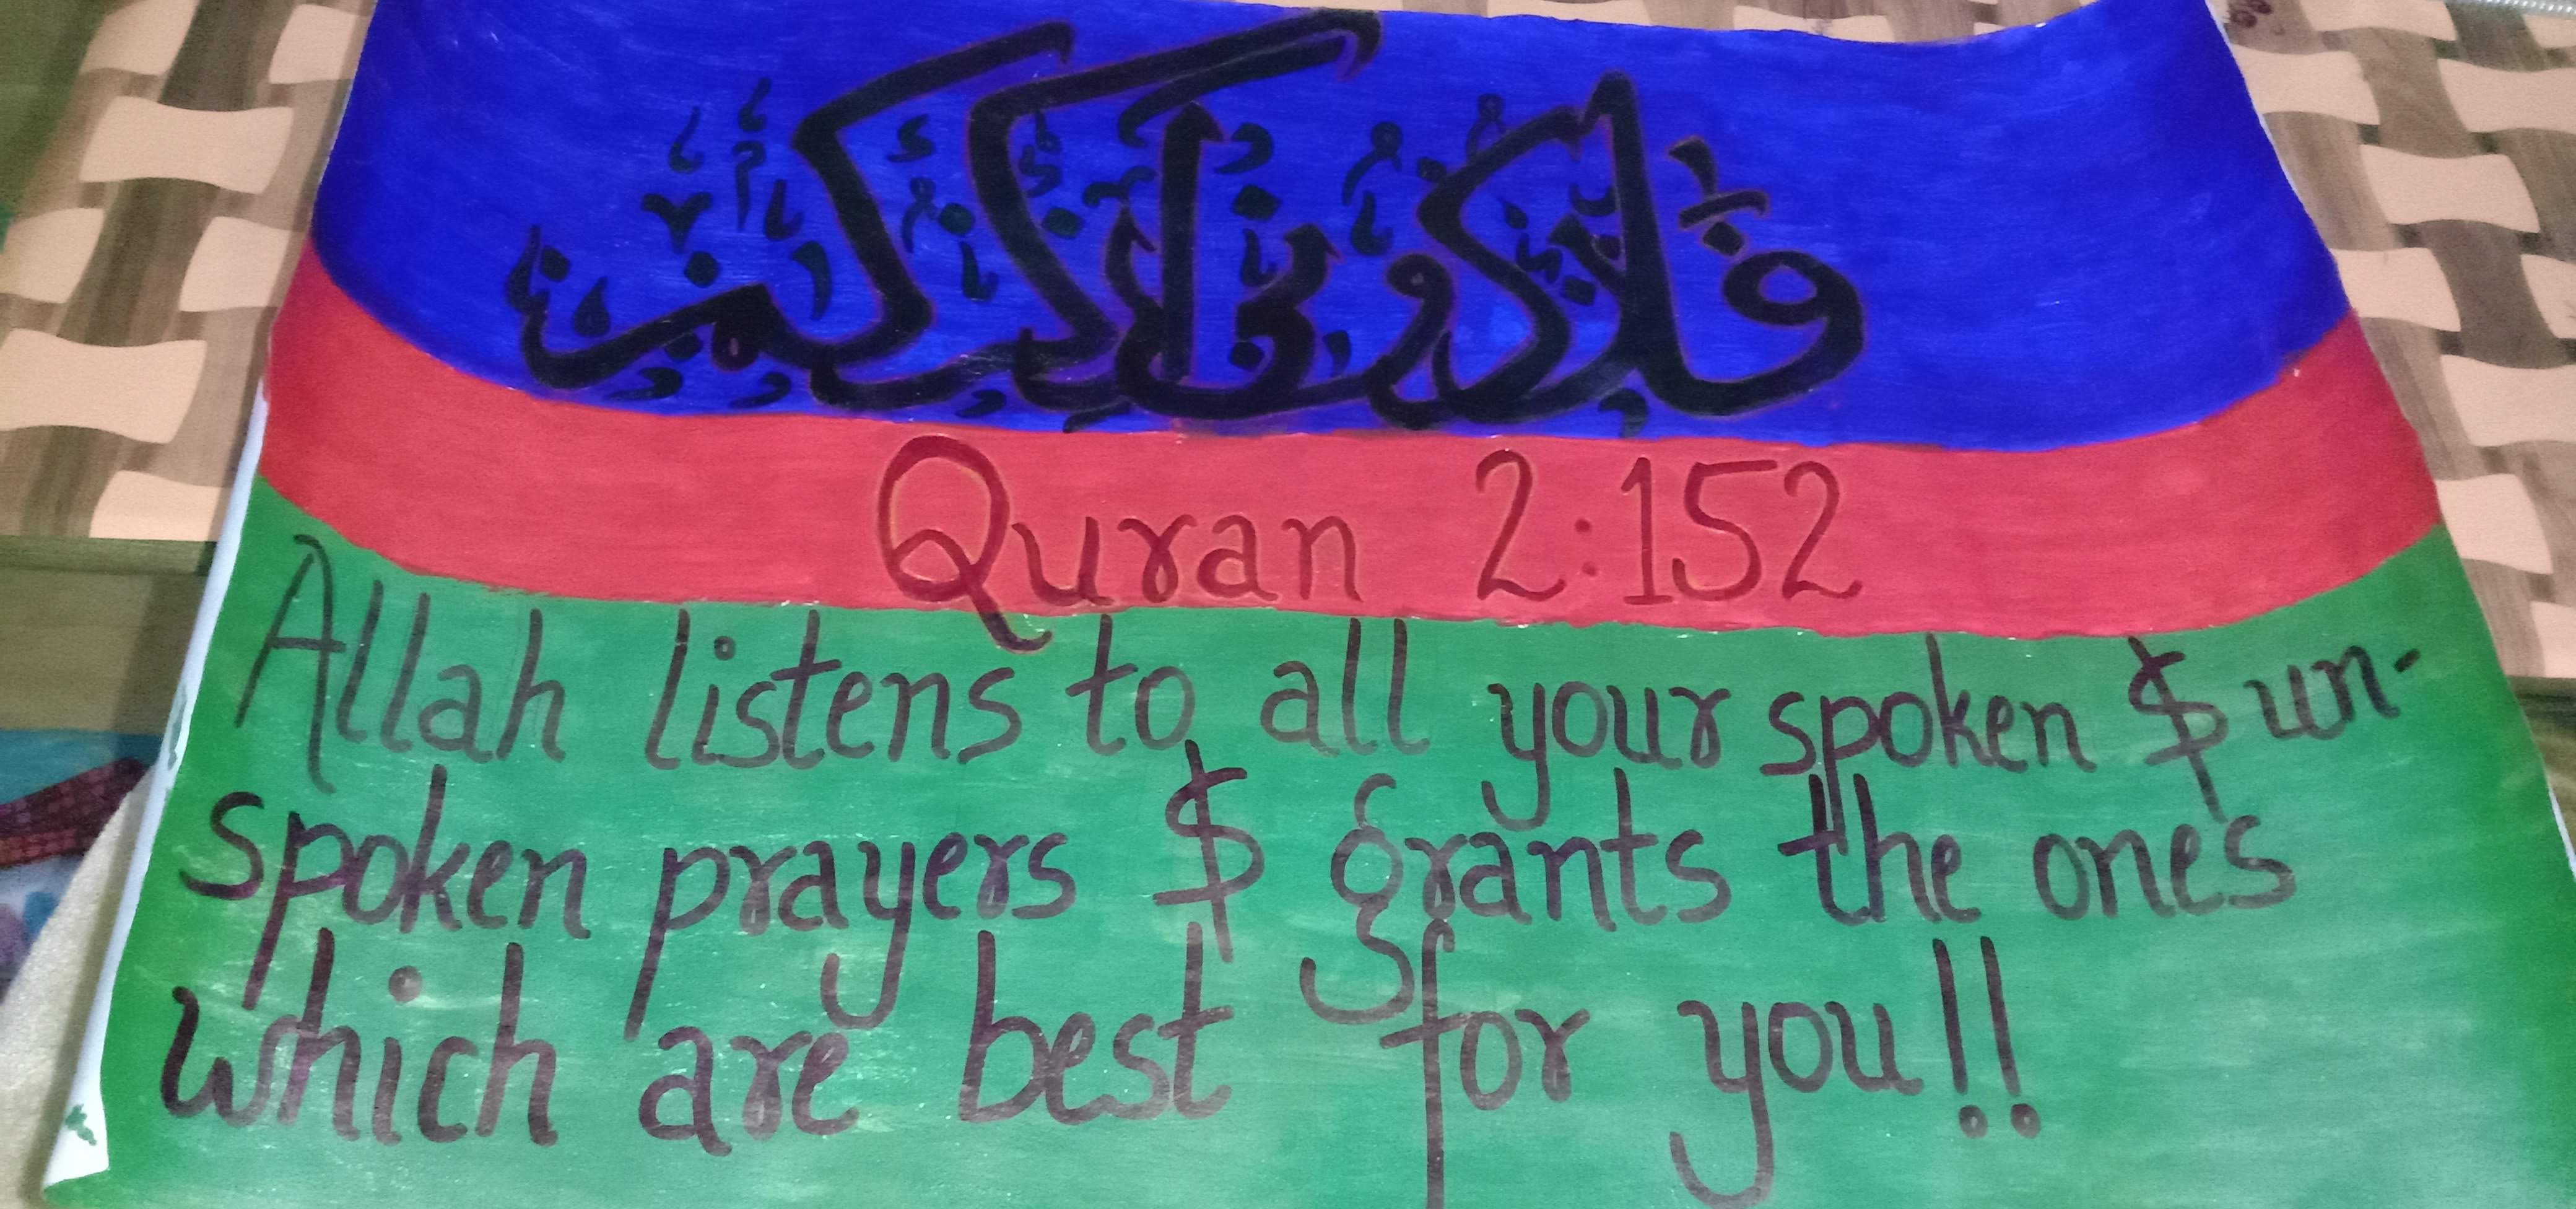 فاذكروني أذكركم
Quran 2:152
Allah listens to all your spoken & un-
spoken prayers & grants the ones
which are best for you!!